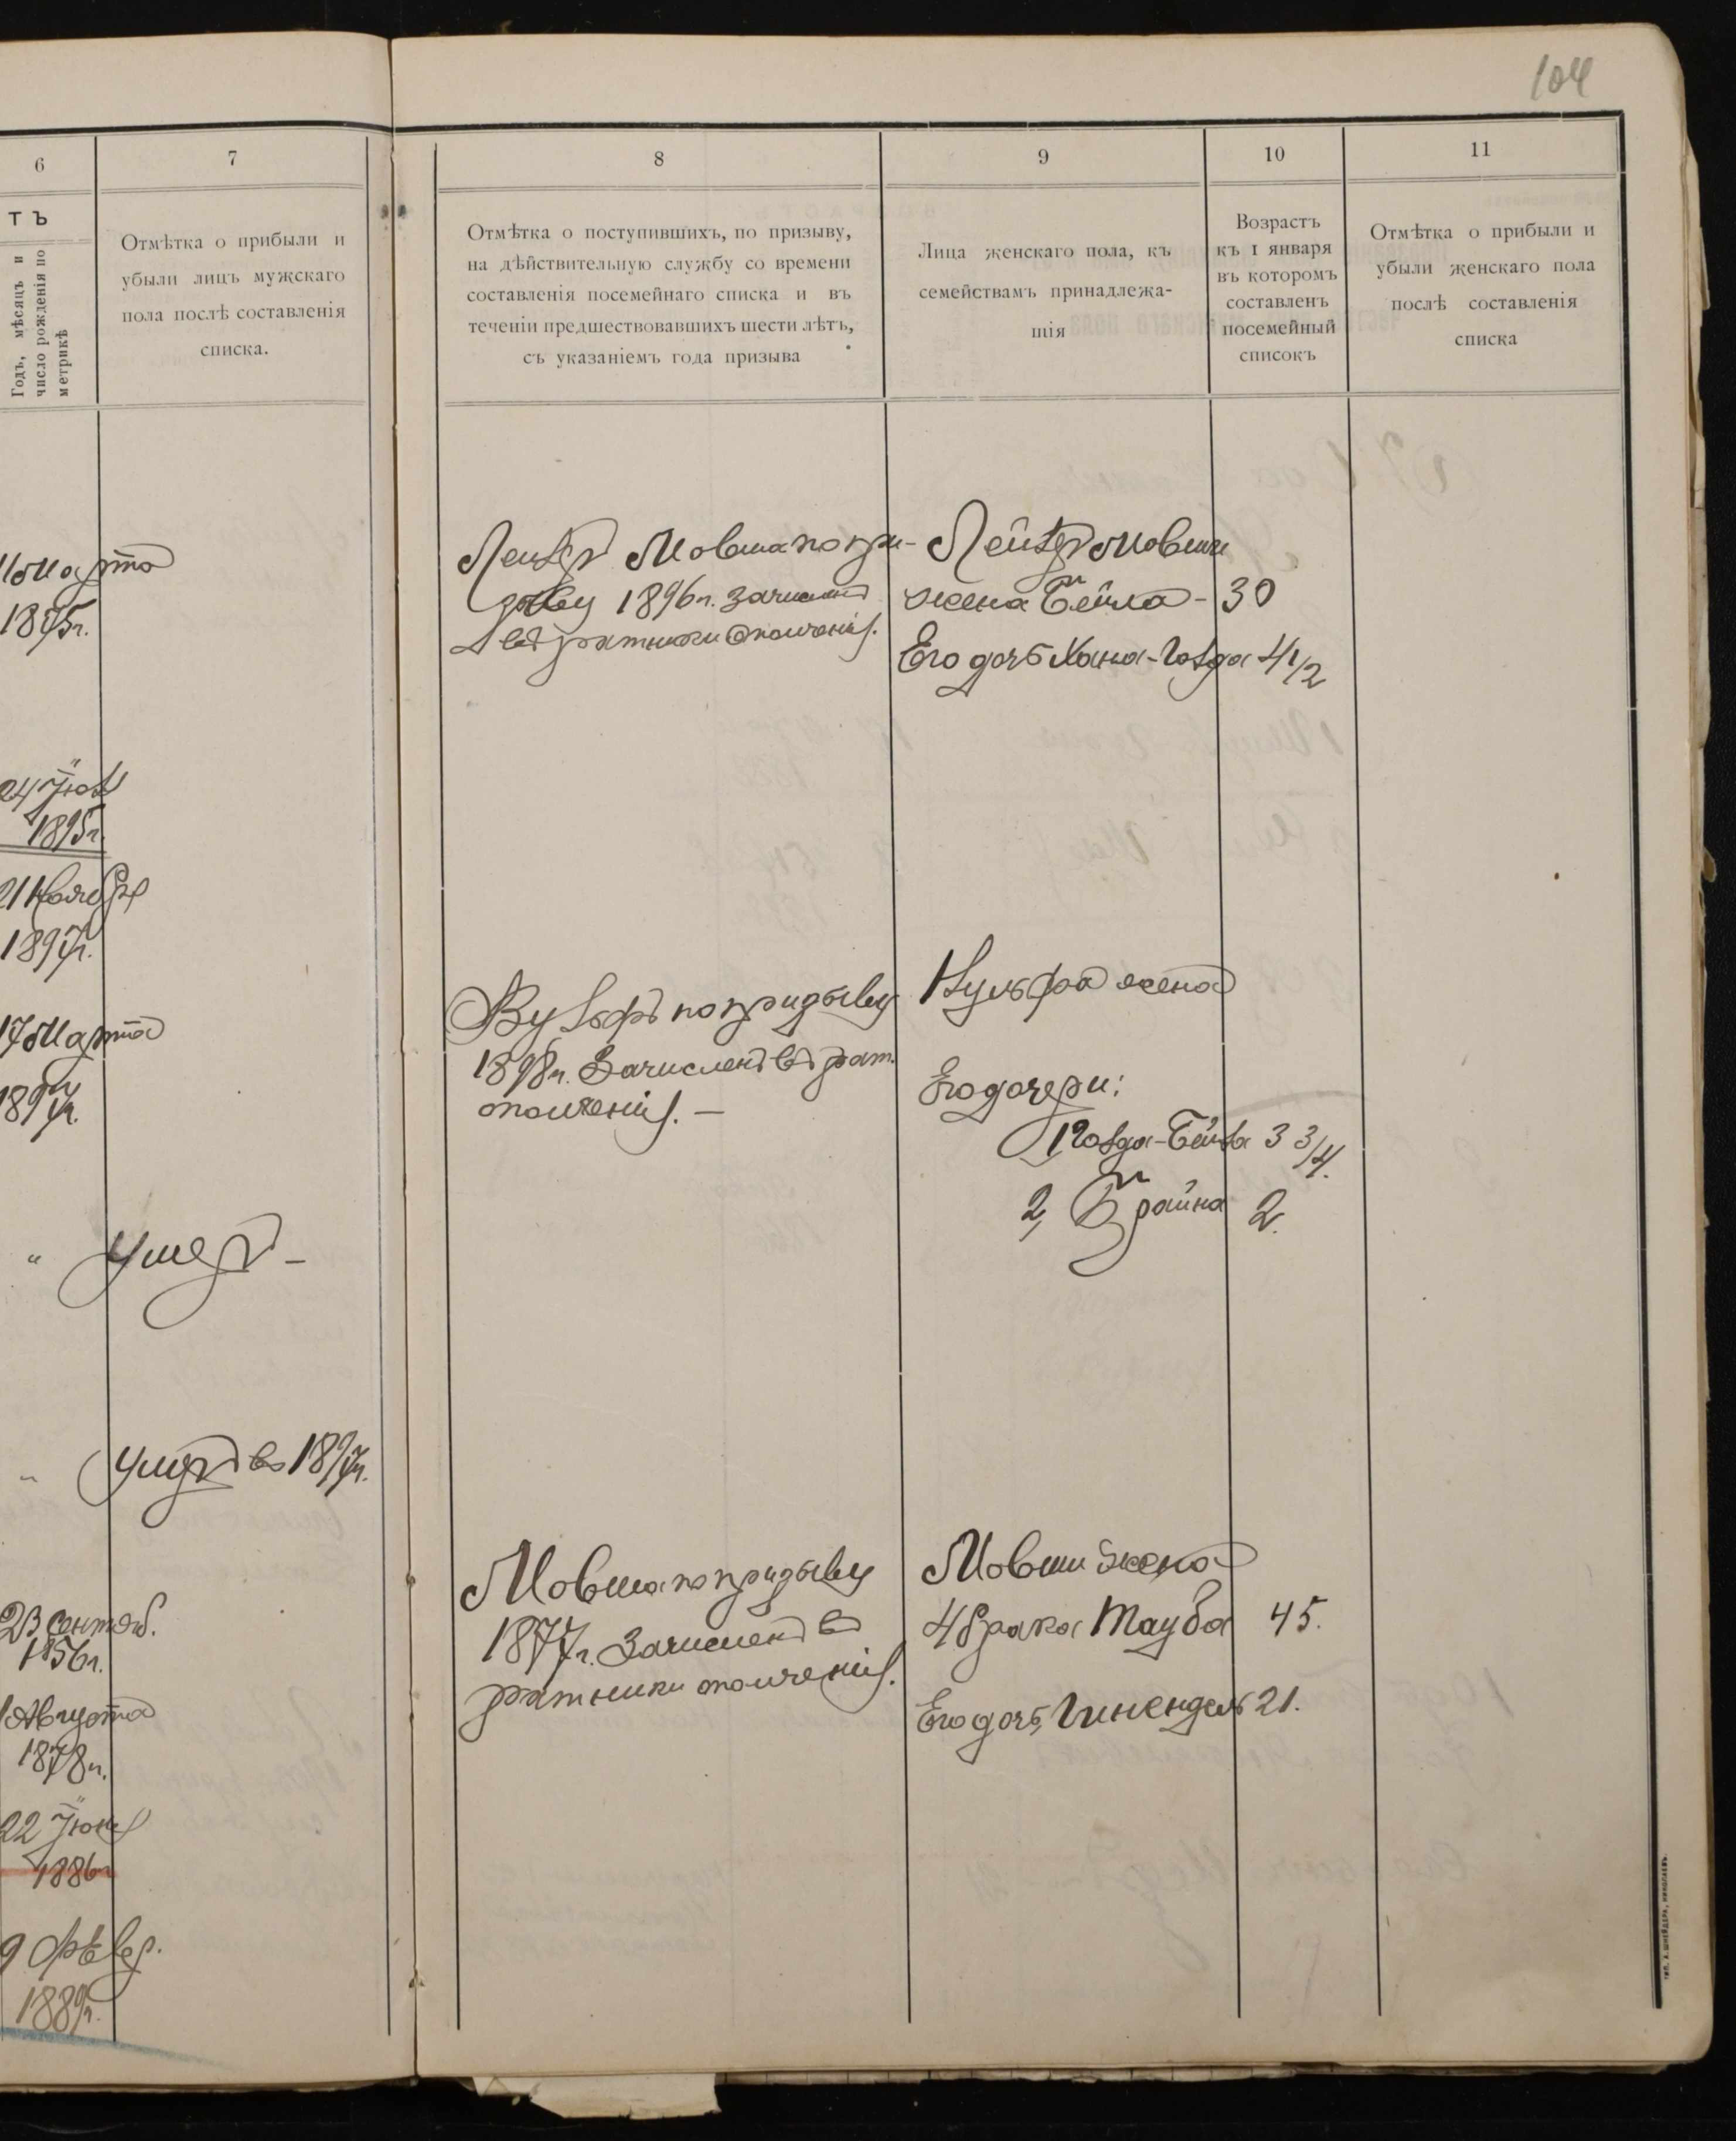 104
6
7
8
9
10
11
ТЪ
Годъ, мѣсяцъ и
число рожденія по
метрикѣ
Отмѣтка о прибыли и
убыли лицъ мужскаго
пола послѣ составленія
списка.
Отмѣтка о поступившихъ, по призыву,
на дѣйствительную службу со времени
составленія посемейнаго списка и въ
теченіи предшествовавшихъ шести лѣтъ,
съ указаніемъ года призыва
Лица женскаго пола, къ
семействамъ принадлежа-
щія
Возрастъ
къ 1 января
въ которомъ
составленъ
посемейный
списокъ
Отмѣтка о прибыли и
убыли женскаго пола
послѣ составленія
списка
Марта
1875г.
24 Іюля
1895г.
21 Ноября
1897г.
17 Марта
1897г.
" Умеръ –
" Умеръ въ 1897г.
23 Сентяб.
1856г.
Августа
1878г.
22 Іюня
1886г
9 Февр.
1889г.
Лейзеръ Мовша по при-
зыву 1896г. зачисленъ
въ ратники ополченія.
Вульфъ по призыву
1898г. Зачисленъ въ рат.
ополченія. –
Мовша по призыву
1877г. Зачисленъ въ
ратники ополченія.
Лейзеръ Мовши
жена Бейла - 30
Его дочь Хана- 4 1/2
жена
Его дочери:
3 3/4.
2, Брайна 2.
Мовши жена
4 брака Тауба 45.
Его дочь Гинендель 21.
тип. А. Шнейдеръ, Николаевъ.